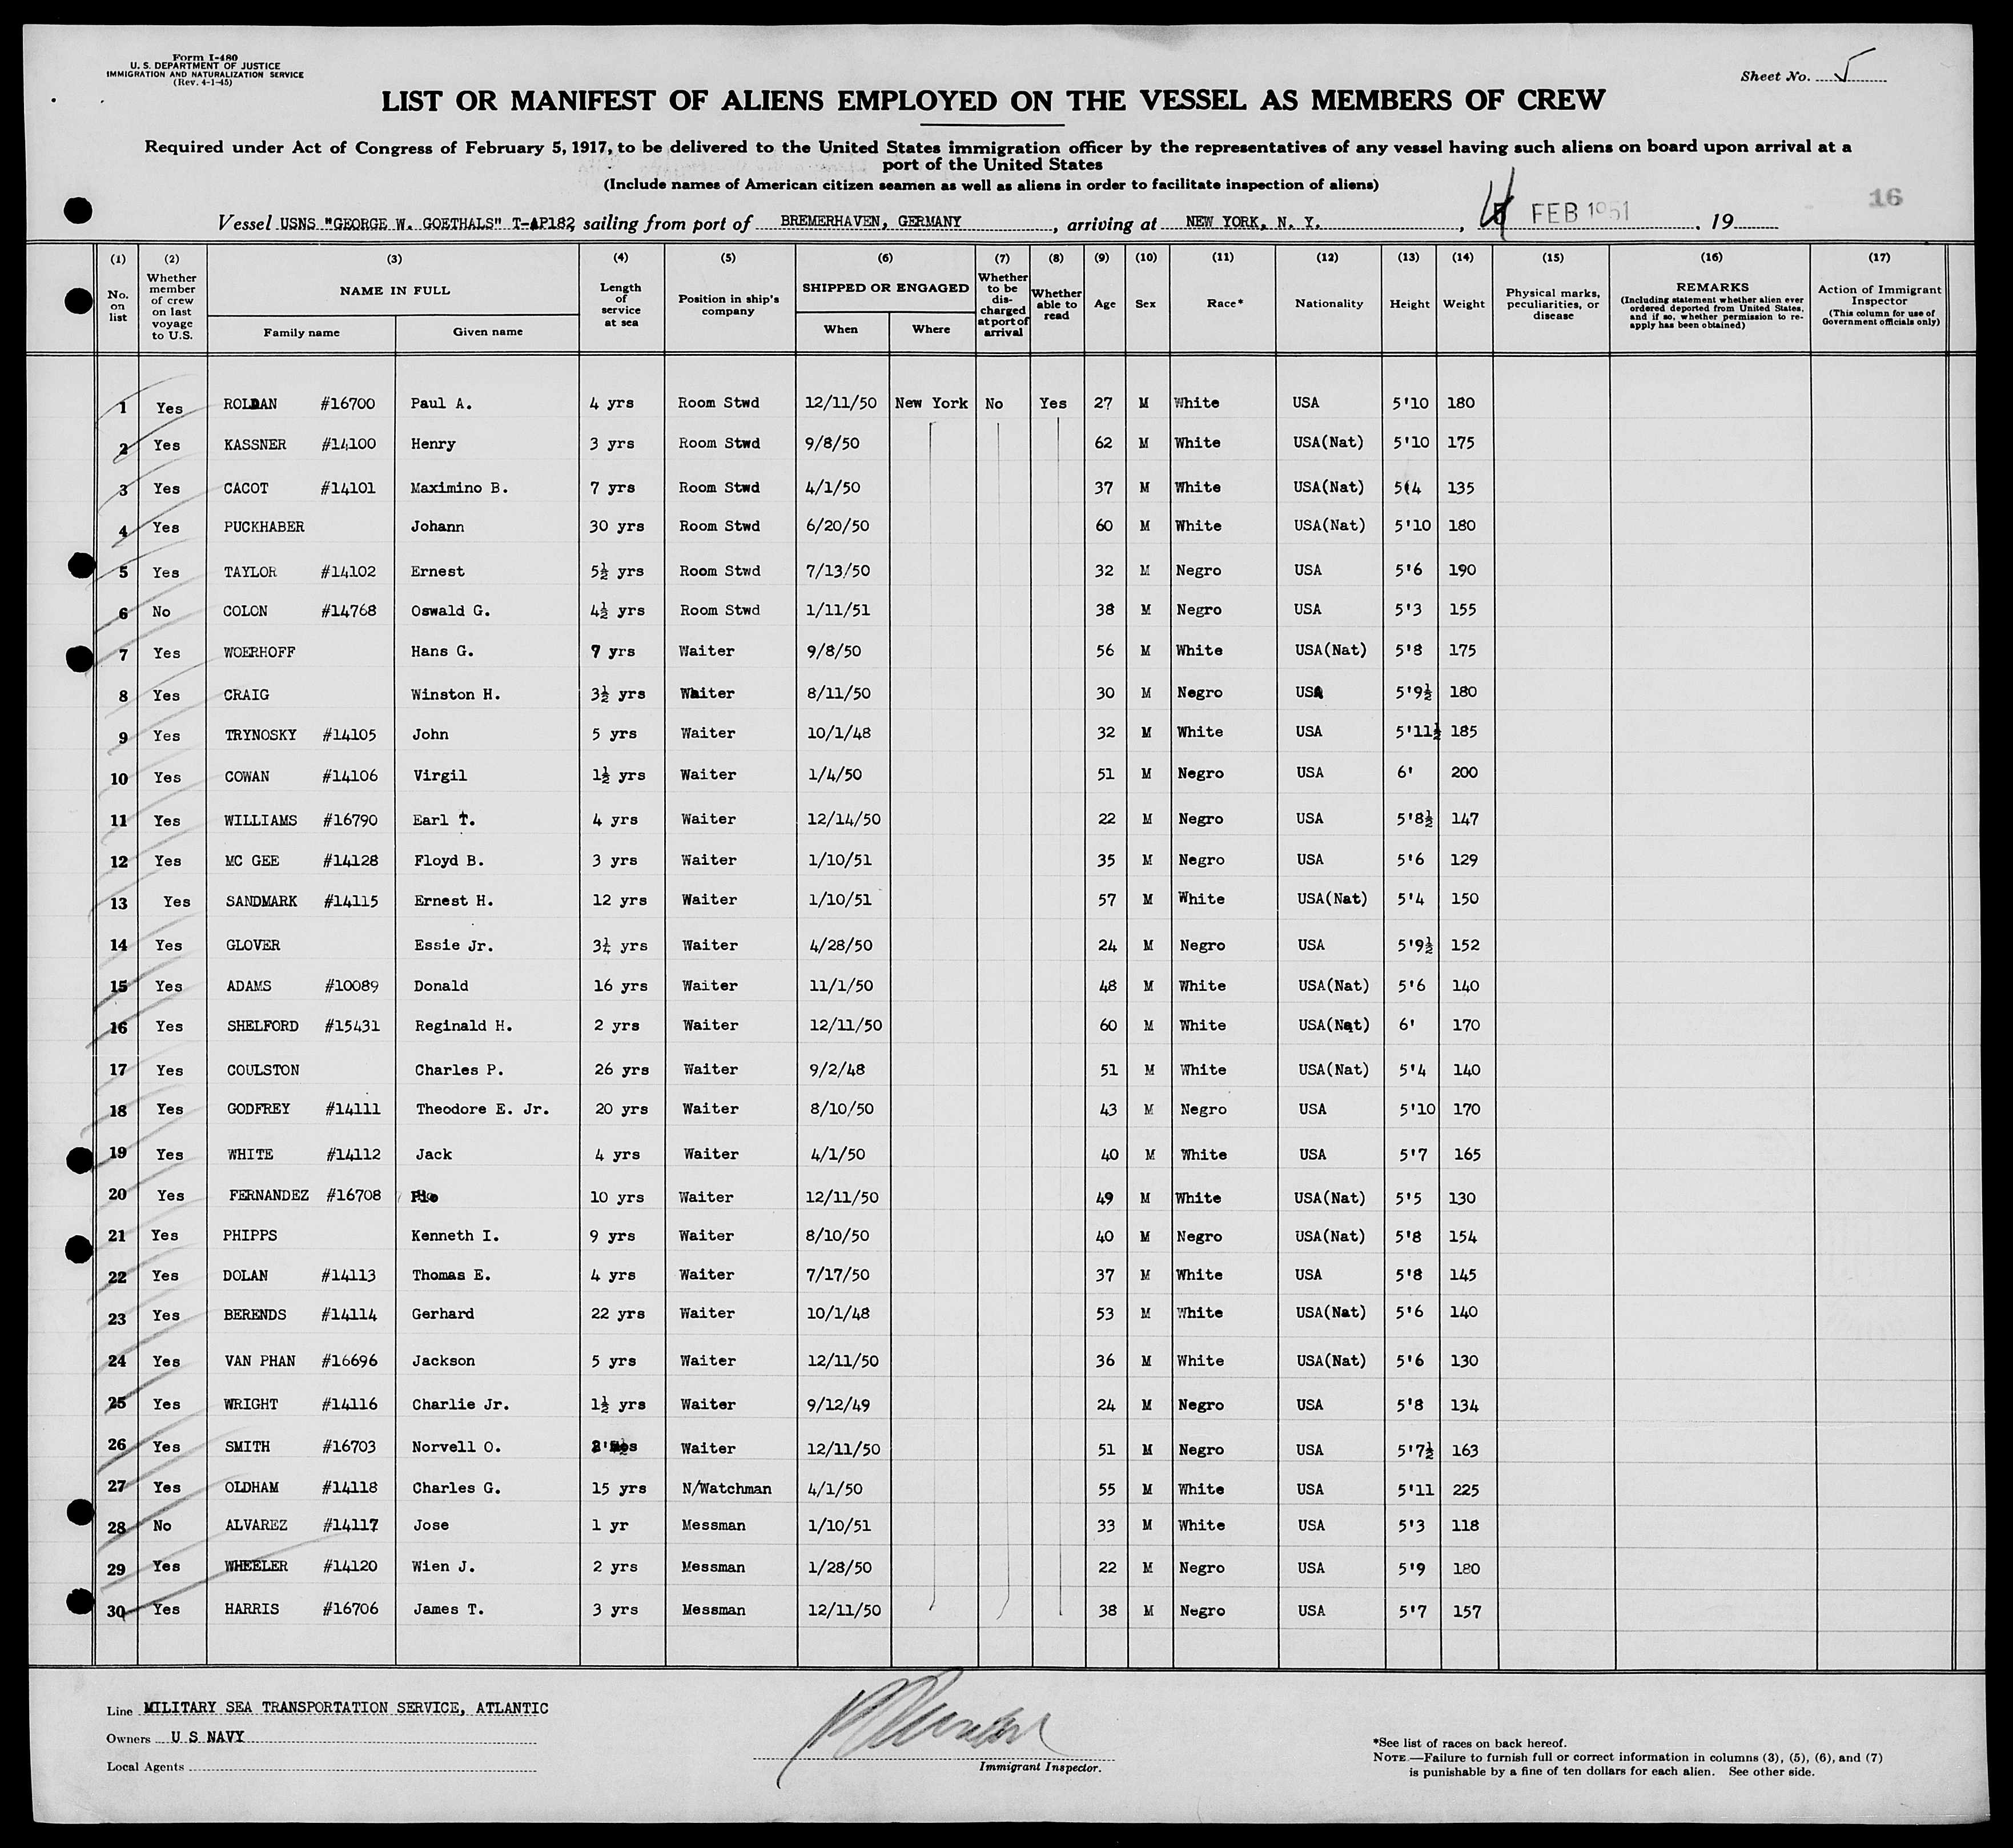 Form I-480
U. S. DEPARTMENT OF JUSTICE
IMMIGRATION AND NATURALIZATION SERVICE
(Rev. 4-1-45)
Sheet No. 5
LIST OR MANIFEST OF ALIENS EMPLOYED ON THE VESSEL AS MEMBERS OF CREW
Required under Act of Congress of February 5, 1917, to be delivered to the United States immigration officer by the representatives of any vessel having such aliens on board upon arrival at a
port of the United States
(Include names of American citizen seamen as well as aliens in order to facilitate inspection of aliens)
16
Vessel USNS "GEORGE W. GOETHALS" T-AP182 sailing from port of BREMERHAVEN, GERMANY, arriving at NEW YORK, N. Y., FEB 1951, 19
(1) (2) (3) (4) (5) (6) (7) (8) (9) (10) (11) (12) (13) (14) (15) (16) (17)
No. on list
Whether member of crew on last voyage to U.S.
NAME IN FULL
Family name
Given name
Length of service at sea
Position in ship's company
SHIPPED OR ENGAGED
When
Where
Whether to be discharged at port of arrival
Whether able to read
Age
Sex
Race*
Nationality
Height
Weight
Physical marks, peculiarities, or disease
REMARKS
(Including statement whether alien ever ordered deported from United States, and if so, whether permission to re-apply has been obtained)
Action of Immigrant Inspector
(This column for use of Government officials only)
1 Yes ROLDAN #16700 Paul A. 4 yrs Room Stwd 12/11/50 New York No Yes 27 M White USA 5'10 180
2 Yes KASSNER #14100 Henry 3 yrs Room Stwd 9/8/50 62 M White USA(Nat) 5'10 175
3 Yes CACOT #14101 Maximino B. 7 yrs Room Stwd 4/1/50 37 M White USA(Nat) 5(4 135
4 Yes PUCKHABER Johann 30 yrs Room Stwd 6/20/50 60 M White USA(Nat) 5'10 180
5 Yes TAYLOR #14102 Ernest 5½ yrs Room Stwd 7/13/50 32 M Negro USA 5'6 190
6 No COLON #14768 Oswald G. 4½ yrs Room Stwd 1/11/51 38 M Negro USA 5'3 155
7 Yes WOERHOFF Hans G. 7 yrs Waiter 9/8/50 56 M White USA(Nat) 5'8 175
8 Yes CRAIG Winston H. 3½ yrs Waiter 8/11/50 30 M Negro USA 5'9½ 180
9 Yes TRYNOSKY #14105 John 5 yrs Waiter 10/1/48 32 M White USA 5'11½ 185
10 Yes COWAN #14106 Virgil 1½ yrs Waiter 1/4/50 51 M Negro USA 6' 200
11 Yes WILLIAMS #16790 Earl T. 4 yrs Waiter 12/14/50 22 M Negro USA 5'8½ 147
12 Yes MC GEE #14128 Floyd B. 3 yrs Waiter 1/10/51 35 M Negro USA 5'6 129
13 Yes SANDMARK #14115 Ernest H. 12 yrs Waiter 1/10/51 57 M White USA(Nat) 5'4 150
14 Yes GLOVER Essie Jr. 3¼ yrs Waiter 4/28/50 24 M Negro USA 5'9½ 152
15 Yes ADAMS #10089 Donald 16 yrs Waiter 11/1/50 48 M White USA(Nat) 5'6 140
16 Yes SHELFORD #15431 Reginald H. 2 yrs Waiter 12/11/50 60 M White USA(Nat) 6' 170
17 Yes COULSTON Charles P. 26 yrs Waiter 9/2/48 51 M White USA(Nat) 5'4 140
18 Yes GODFREY #14111 Theodore E. Jr. 20 yrs Waiter 8/10/50 43 M Negro USA 5'10 170
19 Yes WHITE #14112 Jack 4 yrs Waiter 4/1/50 40 M White USA 5'7 165
20 Yes FERNANDEZ #16708 Pio 10 yrs Waiter 12/11/50 49 M White USA(Nat) 5'5 130
21 Yes PHIPPS Kenneth I. 9 yrs Waiter 8/10/50 40 M Negro USA(Nat) 5'8 154
22 Yes DOLAN #14113 Thomas E. 4 yrs Waiter 7/17/50 37 M White USA 5'8 145
23 Yes BERENDS #14114 Gerhard 22 yrs Waiter 10/1/48 53 M White USA(Nat) 5'6 140
24 Yes VAN PHAN #16696 Jackson 5 yrs Waiter 12/11/50 36 M White USA(Nat) 5'6 130
25 Yes WRIGHT #14116 Charlie Jr. 1½ yrs Waiter 9/12/49 24 M Negro USA 5'8 134
26 Yes SMITH #16703 Norvell O. Waiter 12/11/50 51 M Negro USA 5'7½ 163
27 Yes OLDHAM #14118 Charles G. 15 yrs N/Watchman 4/1/50 55 M White USA 5'11 225
28 No ALVAREZ #14117 Jose 1 yr Messman 1/10/51 33 M White USA 5'3 118
29 Yes WHEELER #14120 Wien J. 2 yrs Messman 1/28/50 22 M Negro USA 5'9 180
30 Yes HARRIS #16706 James T. 3 yrs Messman 12/11/50 38 M Negro USA 5'7 157
Line MILITARY SEA TRANSPORTATION SERVICE, ATLANTIC
Owners U S NAVY
Local Agents
Immigrant Inspector.
*See list of races on back hereof.
NOTE.—Failure to furnish full or correct information in columns (3), (5), (6), and (7)
is punishable by a fine of ten dollars for each alien. See other side.